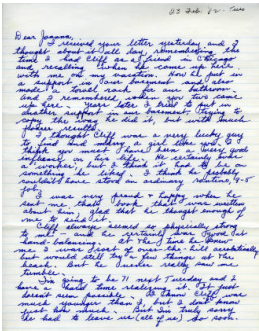 23 Feb 82 - Tues
Dear Joanna,
I received your letter yesterday and I
thought about it all day, remembering the
time I had Cliff as a friend in Chicago
and recalling when he come up here
with me on my vacation. How he put in
a support in our basement and also
made a towel rack for our bathroom.
And I remembered when you two came
up here. Years later I tried to put in
another support in our basement, trying to
copy the way he did it, but with much
poorer results.
I thought Cliff was a very lucky guy
to find and marry a girl like you & I
think you must have been a very good
influence in his life. He certainly was
a worker, but I think it had to be on
something he liked. I think he probably
couldn't have stood an ordinary routine 9-5
job.
I was very proud & happy when he
sent me that book that was written
about him & glad that he thought enough of
me to send it.
Cliff always seemed so physically strong
to me - and he certainly was. Loved our
hand-balancing. At the time he knew
me I was frost or over-the-hill acrobatically
but would still try a few things at the
beach. But the Tucker really sure me
tumble.
I'm going to be 71 next Tuesday and I
have a hard time realizing it. It just
doesn't seem possible. I know Cliff was
much younger than I, but I don't know
just how much. But I'm truly sorry
he had to leave us (all of us) so soon.